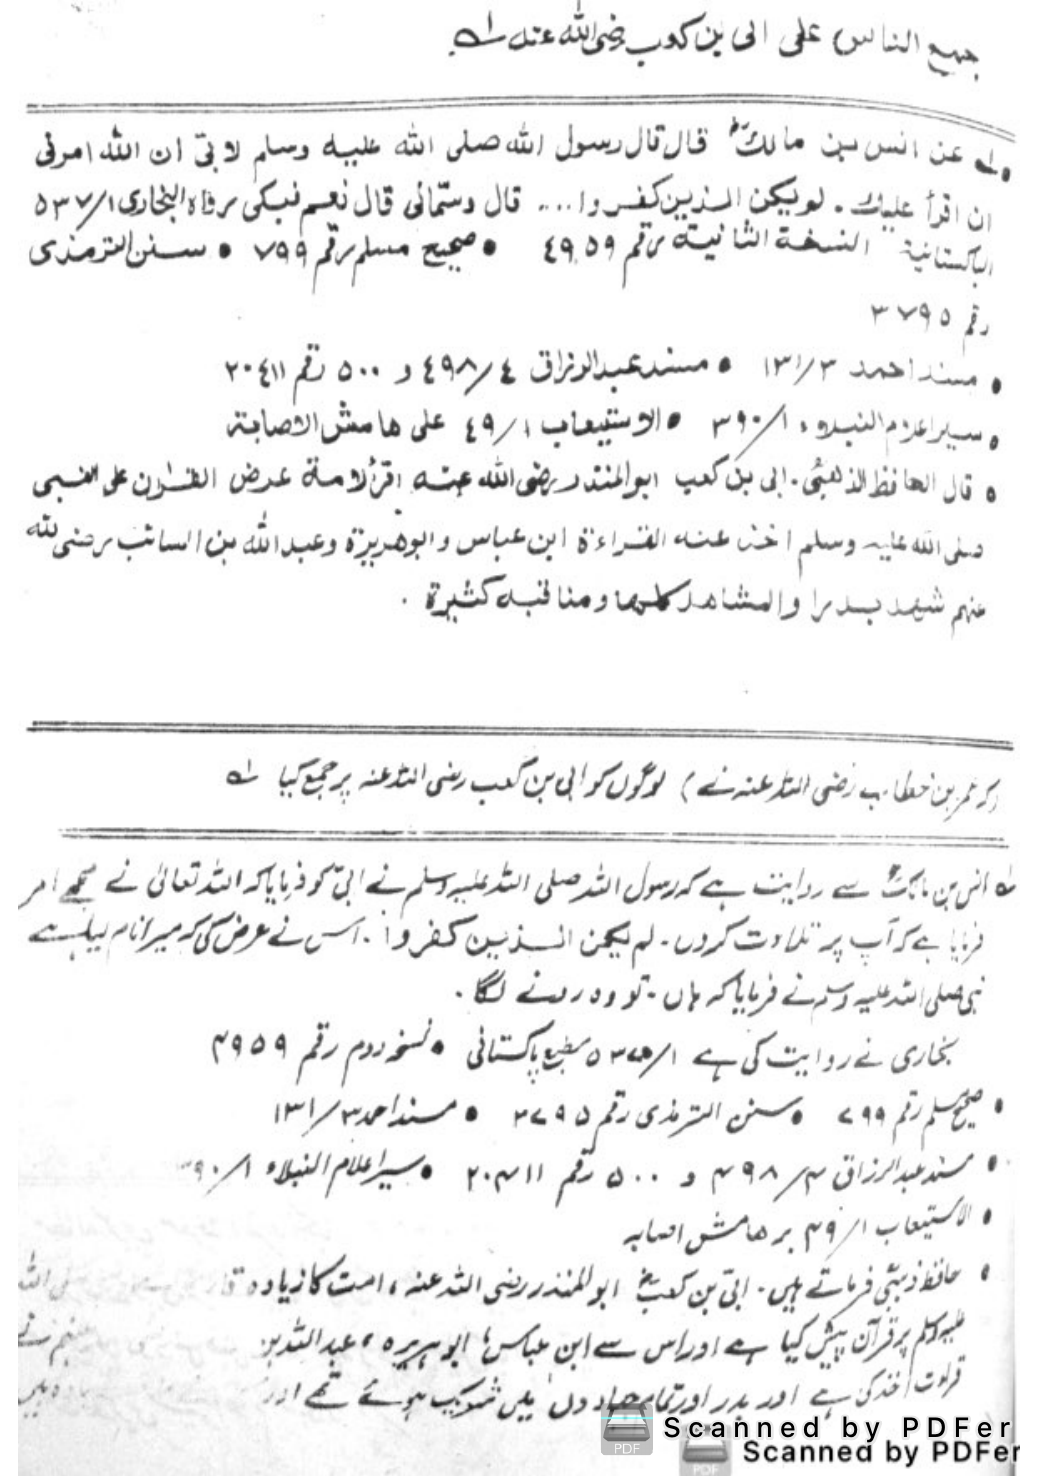 جمع الناس على ابى بن كعب رضى الله عنه ؎۱
؎۱ عن انس بن مالكؓ قال قال رسول الله صلى الله عليه وسلم لابىّ ان الله امرنى
ان اقرأ عليك . لم يكن الذين كفروا .... قال وسمّانى قال نعم فبكى رواه البخارى ۱/۵۳۷
الباكستانية النسخة الثانية رقم ٤٩٥٩ • صحيح مسلم رقم ۷۹۹ • سنن الترمذى
رقم ۳۷۹۵
• مسند احمد ۳/۱۳۱ • مسند عبدالرزاق ٤/٤٩٨ و ۵۰۰ رقم ۲۰٤۱۱
• سير اعلام النبلاء ۱/۳۹۰ • الاستيعاب ۱/٤٩ على هامش الاصابة
• قال الحافظ الذهبىؒ . ابى بن كعب ابوالمنذر رضى الله عنه اقرأ لامة عرض القرآن على النبى
صلى الله عليه وسلم اخذ عنه القراءة ابن عباس و ابوهريرة وعبدالله بن السائب رضى الله
عنهم شهد بدرا والمشاهد كلها ومناقبه كثيرة .
(کہ عمر بن خطاب رضی اللہ عنہ نے) لوگوں کو ابی بن کعب رضی اللہ عنہ پر جمع کیا ؎۱
؎۱ انس بن مالکؓ سے روایت ہے کہ رسول اللہ صلی اللہ علیہ وسلم نے ابیّ کو فرمایا کہ اللہ تعالیٰ نے مجھے امر
فرمایا ہے کہ آپ پر تلاوت کروں . لم یکن الذین کفروا . اس نے عرض کی کہ میرا نام لیا ہے
نبی صلی اللہ علیہ وسلم نے فرمایا کہ ہاں . تو وہ رونے لگا .
بخاری نے روایت کی ہے ۱/۵۳۷ مطبع پاکستانی • نسخہ دوم رقم ۴۹۵۹
• صحیح مسلم رقم ۷۹۹ • سنن الترمذی رقم ۳۷۹۵ • مسند احمد ۳/۱۳۱
• مسند عبدالرزاق ۴/۴۹۸ و ۵۰۰ رقم ۲۰۴۱۱ • سیر اعلام النبلاء ۱/۳۹۰
• الاستیعاب ۱/۴۹ بر ھامش اصابہ
• حافظ ذہبیؒ فرماتے ہیں . ابیّ بن کعبؓ ابوالمنذر رضی اللہ عنہ ، امت کا زیادہ اللہ
علیہ وسلم پر قرآن پیش کیا ہے اور اس سے ابن عباس ، ابوہریرہ ، عبداللہ بن عنہم نے
قراءت اخذ کی ہے اور بدر اور تمام جہادوں میں شریک ہوئے تھے اور ہیں
Scanned by PDFer
Scanned by PDFer